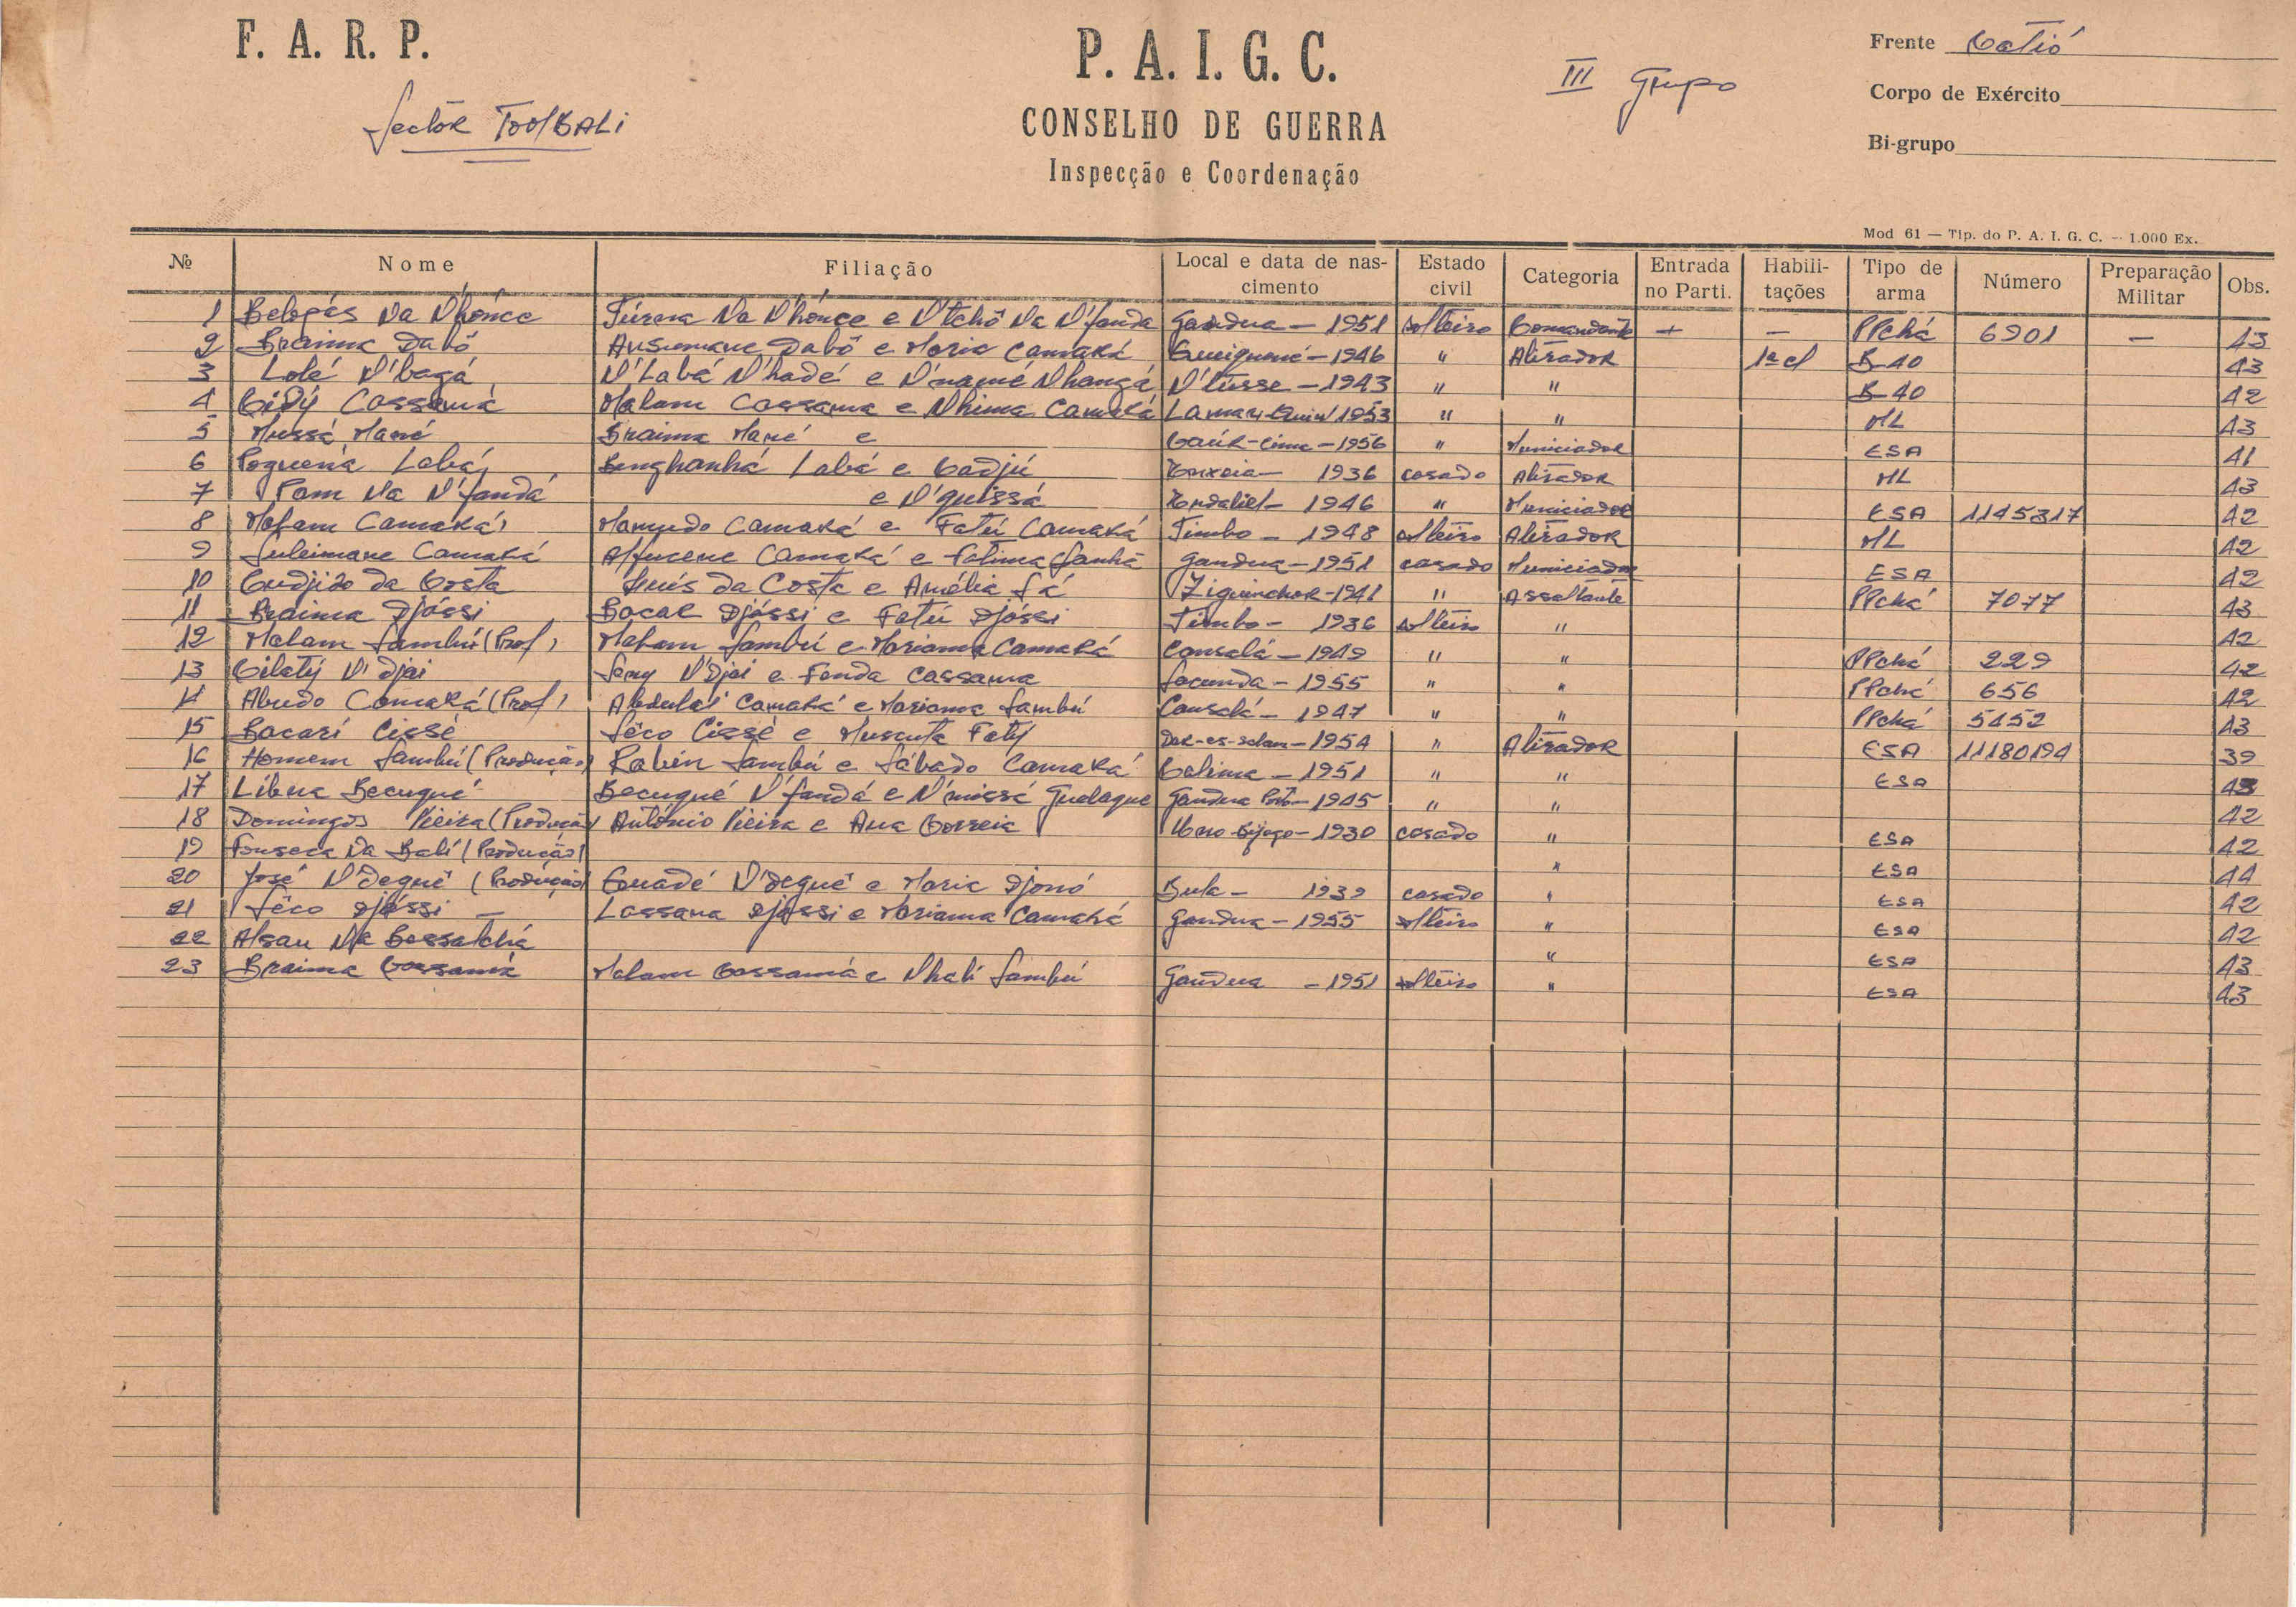 F. A. R. P.
Sectôr Toolbali
P. A. I. G. C.
CONSELHO DE GUERRA
Inspecção e Coordenação
III Grupo
Frente Catió
Corpo de Exército
Bi-grupo
Mod 61 — Tip. do P. A. I. G. C. — 1.000 Ex.
Nº Nome Filiação Local e data de nascimento Estado civil Categoria Entrada no Parti. Habilitações Tipo de arma Número Preparação Militar Obs.
1 Na N'hónce Na N'hónce e N'tchô Na N'fanda Gandua — 1951 solteiro Comandante + — PPchá 6901 — 43
2 Braima Dabó Ansumane Dabó e Maria Camará 1946 " Atirador 1ª cl B-40 43
3 Lolé N'bagá N'Labá N'hadé e N'namé Nhangá N'tusse — 1943 " " B-40 42
4 Cidÿ Cassamá Malam Cassama e Nhima Camará 1953 " " ML 43
5 Mussá Mané Braima Mané e 1956 " Municiador ESA 41
6 Poquena Labá Labá e Cadjú 1936 casado Atirador ML 43
7 Pam Na N'fandá e N'quissá 1946 " Municiador ESA 1145317 42
8 Mafam Camará Mamudo Camará e Fatú Camará Timbo — 1948 solteiro Atirador ML 42
9 Suleimane Camará Camará e Fatima Sanhá Gandua — 1951 casado Municiador ESA 42
10 Cudjido da Costa Luís da Costa e Amélia Sá Ziguinchor — 1941 " Assaltante PPchá 7077 43
11 Braima Djássi Bacar Djássi e Fatú Djássi Timbo — 1936 solteiro " 42
12 Malam Sambú (Prof) Mafam Sambú e Mariama Camará Cansalá — 1949 " " PPchá 229 42
13 N'djai Seny N'djai e Fanda Cassama 1955 " " PPchá 656 42
14 Abudo Camará (Prof) Abdulai Camará e Mariama Sambú Cansalá — 1947 " " PPchá 5452 43
15 Bacari Cissé Sêco Cissé e Muscuta Faty Dar-es-salam — 1954 " Atirador ESA 11180194 39
16 Homem Sambú (Produção) Sambú e Sábado Camará 1951 " " ESA 43
17 Becuqué Becuqué N'fandá e N'missá Gandua Porto — 1945 " " 42
18 Domingos Vieira (Produção) António Vieira e Ana Correia 1930 casado " ESA 42
19 Fonseca Na Bali (Produção) " ESA 44
20 José N'dequê (Produção) N'dequê e Maria Djonó Bula — 1939 casado " ESA 42
21 Sêco Djássi — Lassana Djassi e Mariama Camará Gandua — 1955 solteiro " ESA 42
22 Alsau Na " ESA 43
23 Braima Cassamá Malam Cassamá e Nhali Sambú Gandua — 1951 solteiro " ESA 43